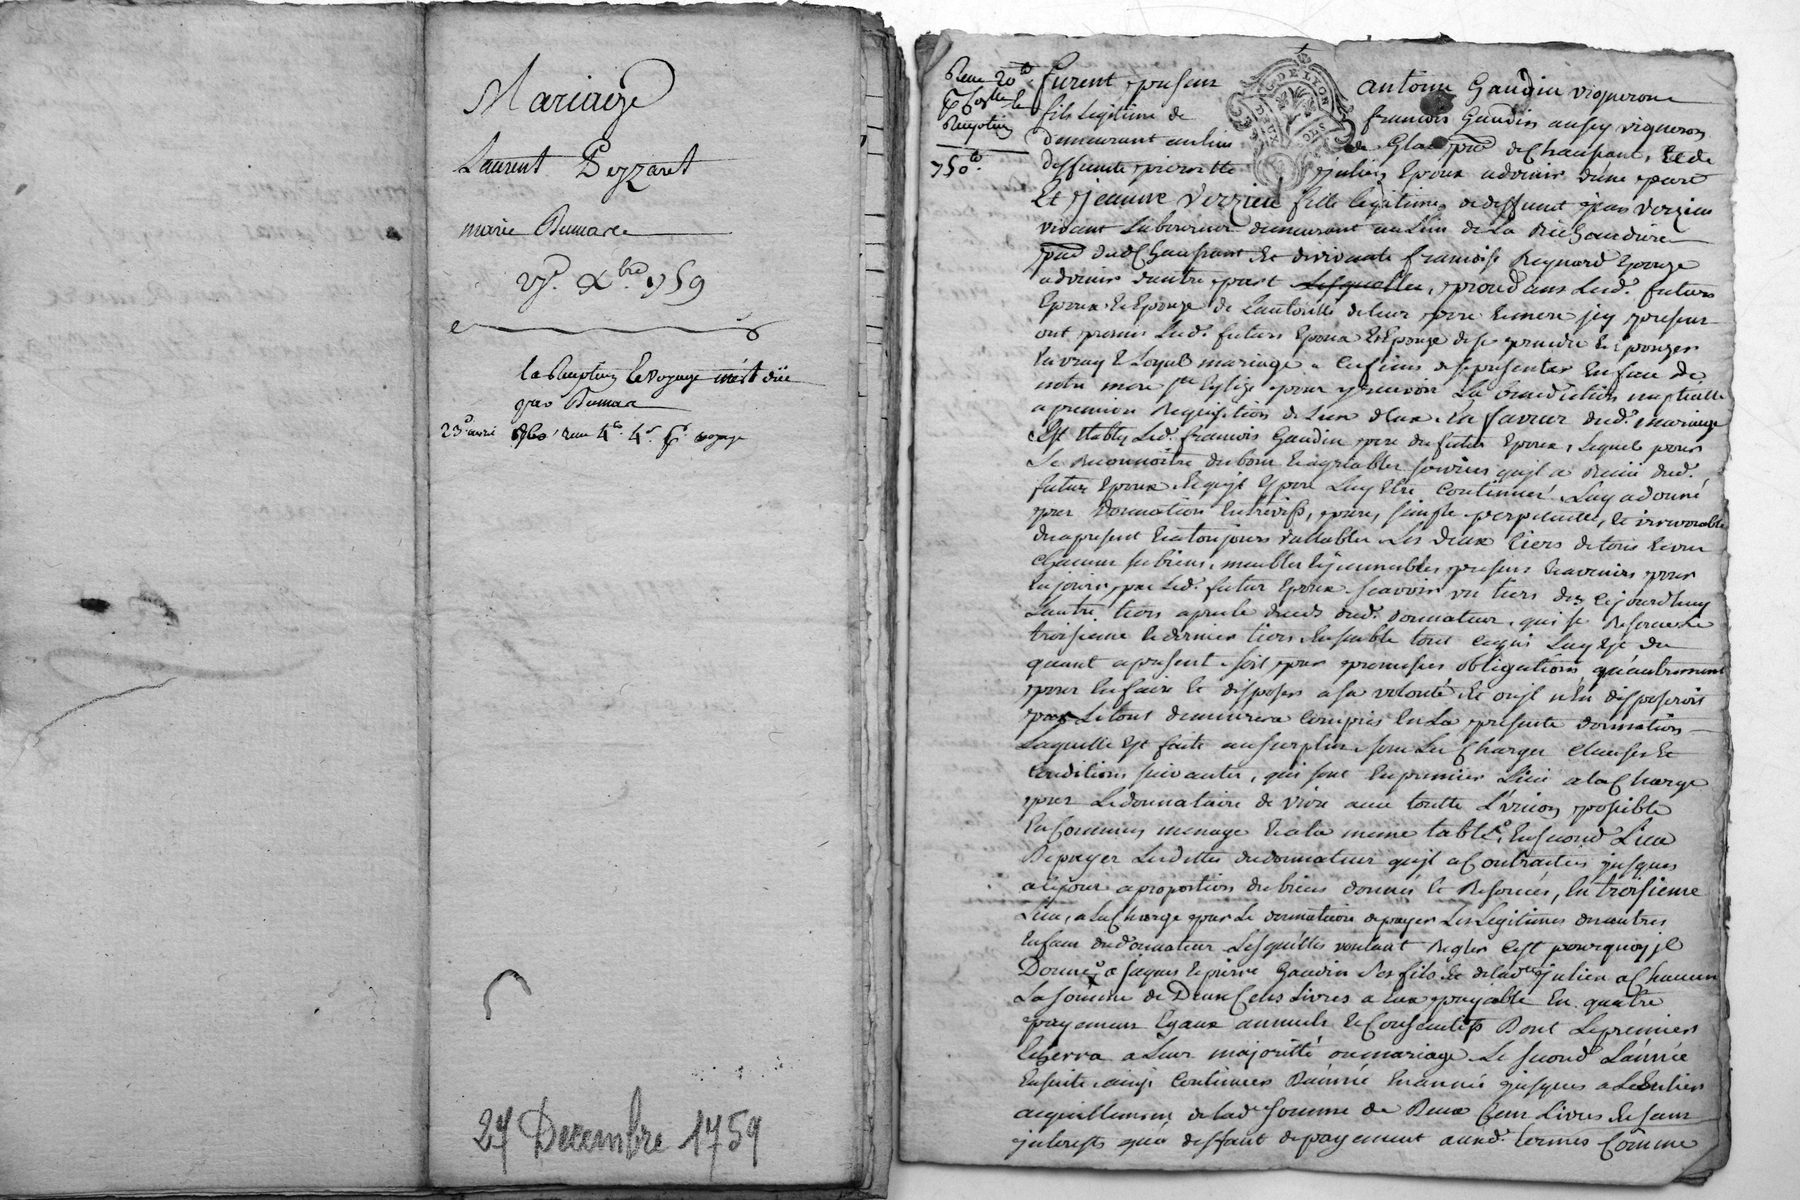 Mariage
Laurent Peyzaret
marie Dumare
Xbre 1759
la Reception Le voyage m'est düe
par Dumare
23e avril 1760 reçu 4lt 4s voyage
27 Decembre 1759
Reçu 20lt
Reception
750lt
GEN. DE LYON
DEUX SOLS
furent presens antoine Gaudin vigneron
fils legitime de francois Gaudin aussy vigneron
demeurant au lieu de
deffunte pierrette Julien Epoux advenir dune part
Et Jeanne Verzieu fille legitime de deffunct Jean Verzieu
vivant Laboureur demeurant au Lieu de La Richaudiere
Et de vivante francoise Reynard Epouze
advenir dautre part Lesquelles, Led. futurs
Epoux et Epouze de Lautorité de leur pere et mere jcy presens
ont promis Led. futurs Epoux et Epouze de se prendre et Epouzer
en vray et Loyal mariage a ces fins de se presenter en face de
notre mere ste Eglize pour y recevoir La benediction nuptialle
a premiere Requisition de Lun deux. En faveur dud. mariage
Est Etably Led. francois Gaudin pere du futur Epoux, Lequel pour
se Reconnoitre des bons et agreables services qu'jl a Receu dud.
futur Epoux, et qu'jl Espere Luy Etre continués, Luy a donné
par donnation entrevifs, pure, simple perpetuelle, et irrevocable
des apresent et atoujours vallable Les deux tiers de tous et un
chacuns ses biens, meubles et jmmeubles presens et avenirs pour
en jouir par Led. futur Epoux scavoir un tiers des cejourdhuy
Lautre tiers apres le deceds dud. donnateur, qui se Reserve Le
troisieme et dernier tiers, Ensemble tout ce qui Luy Est du
quant apresent soit par promesses obligations qu'autrement
pour en faire et disposer a sa volonté, Et ou jl n'en disposeroit
pas Le tout demeurera compris en La presente donnation
Laquelle est faite au surplus sous Les Charges clauses et
conditions suivantes, qui sont en premier Lieu a la charge
par Le donnataire de vivre avec toutte L'union possible
en Commun menage et a la meme table, En second Lieu
de payer Les dettes du donnateur qu'jl a Contractées jusques
a ce jour a proportion des biens donnés et Reservés, En troisieme
Lieu, a la Charge par Le donnataire de payer Les Legitimes des autres
Enfans du donnateur Lesquelles voulant Regler c'est pourquoy jl
Donne a Jaques et pierre Gaudin ses fils et de lade Julien a Chacun
La somme de Deux Cens Livres a Eux payable En quatre
payemens Egaux annuels et consecutifs Dont Le premier
Echerra a Leur majoritté ou mariage Le second Lannée
Ensuite ainsi continuer Dannée En année jusques a Lentier
acquittement de lade somme de Deux Cens Livres et sans
jnterests qu'a deffaut de payement auxd. termes Comme